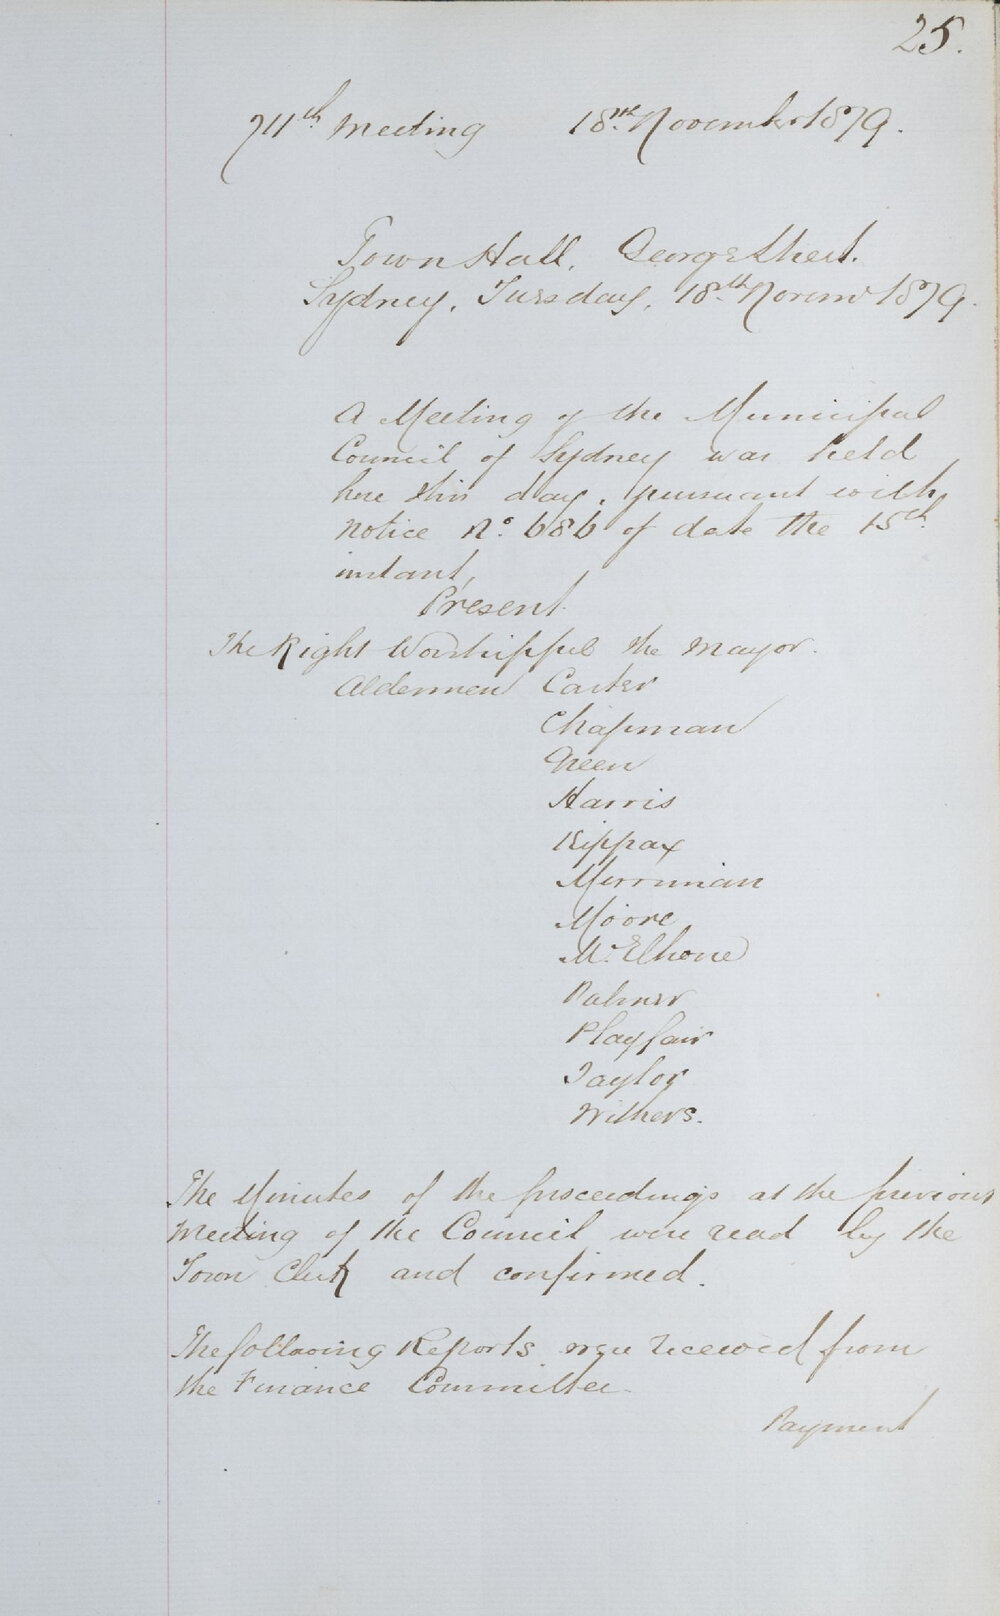 25.
711th Meeting 18th November 1879.
Town Hall, George Street.
Sydney, Tuesday, 18th Novemr 1879.
A Meeting of the Municipal
Council of Sydney was held
here this day, pursuant with
notice No. 686 of date the 15th
instant,
Present.
The Right Worshipful the Mayor.
Aldermen Carter
Chapman
Green
Harris
Kippax
Merriman
Moore
McElhone
Palmer
Playfair
Taylor
Withers.
The Minutes of the proceedings at the previous
Meeting of the Council were read by the
Town Clerk and confirmed.
The following Reports were received from
the Finance Committee.
Payment